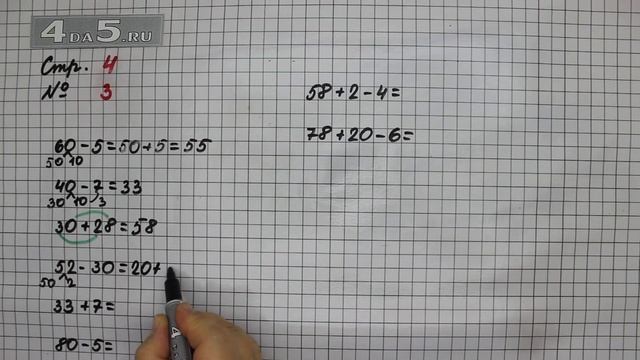 4DA5.RU
Стр. 4
№ 3
60 - 5 = 50 + 5 = 55
50 10
40 - 7 = 33
30 10 3
30 + 28 = 58
52 - 30 = 20 +
50 2
33 + 7 =
80 - 5 =
58 + 2 - 4 =
78 + 20 - 6 =